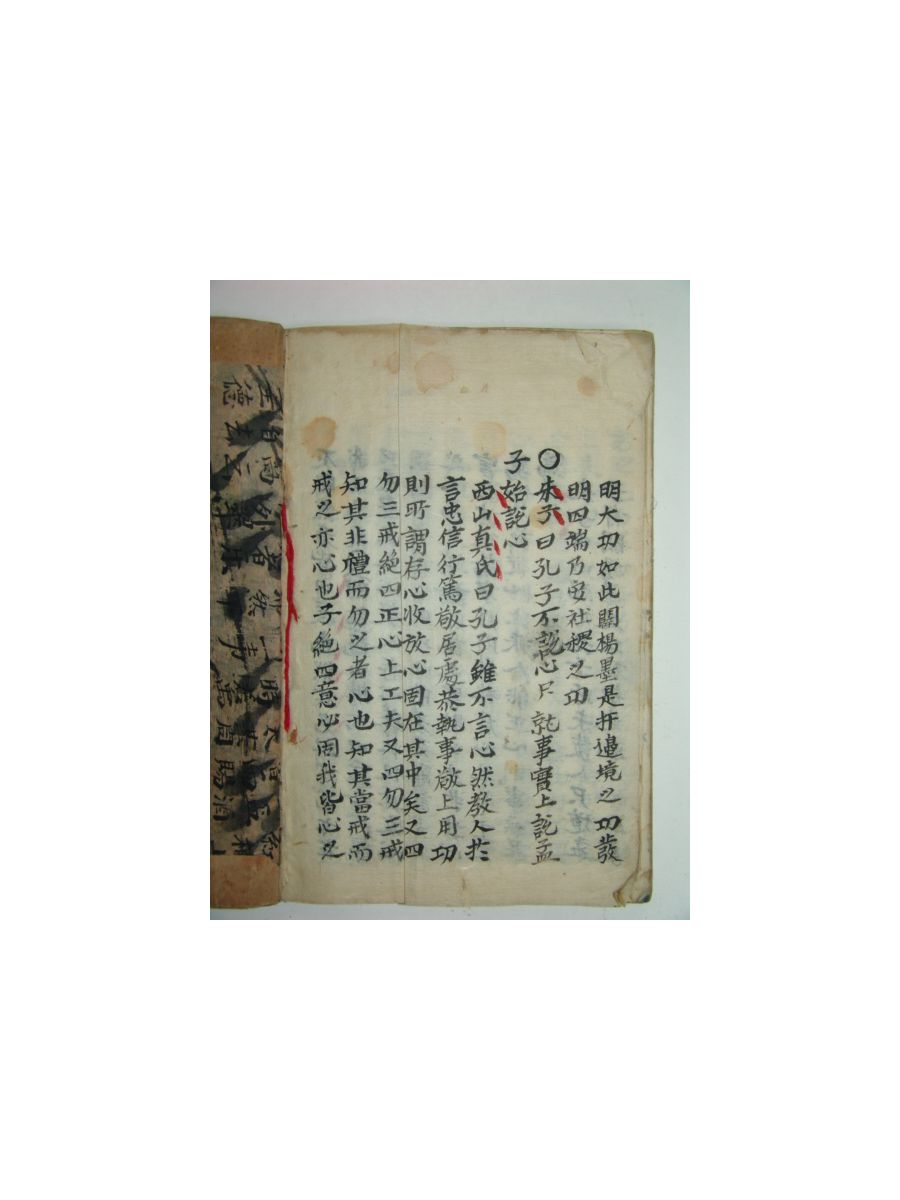 明大功如此闢楊墨是扞邊境之功發
明四端乃安社稷之功
〇朱子曰孔子不說心只就事實上說孟
子始說心
西山真氏曰孔子雖不言心然教人於
言忠信行篤敬居處恭執事敬上用功
則所謂存心收放心固在其中矣又四
勿三戒絶四正心上工夫又四勿三戒
知其非禮而勿之者心也知其當戒而
戒之亦心也子絶四意必固我皆心之